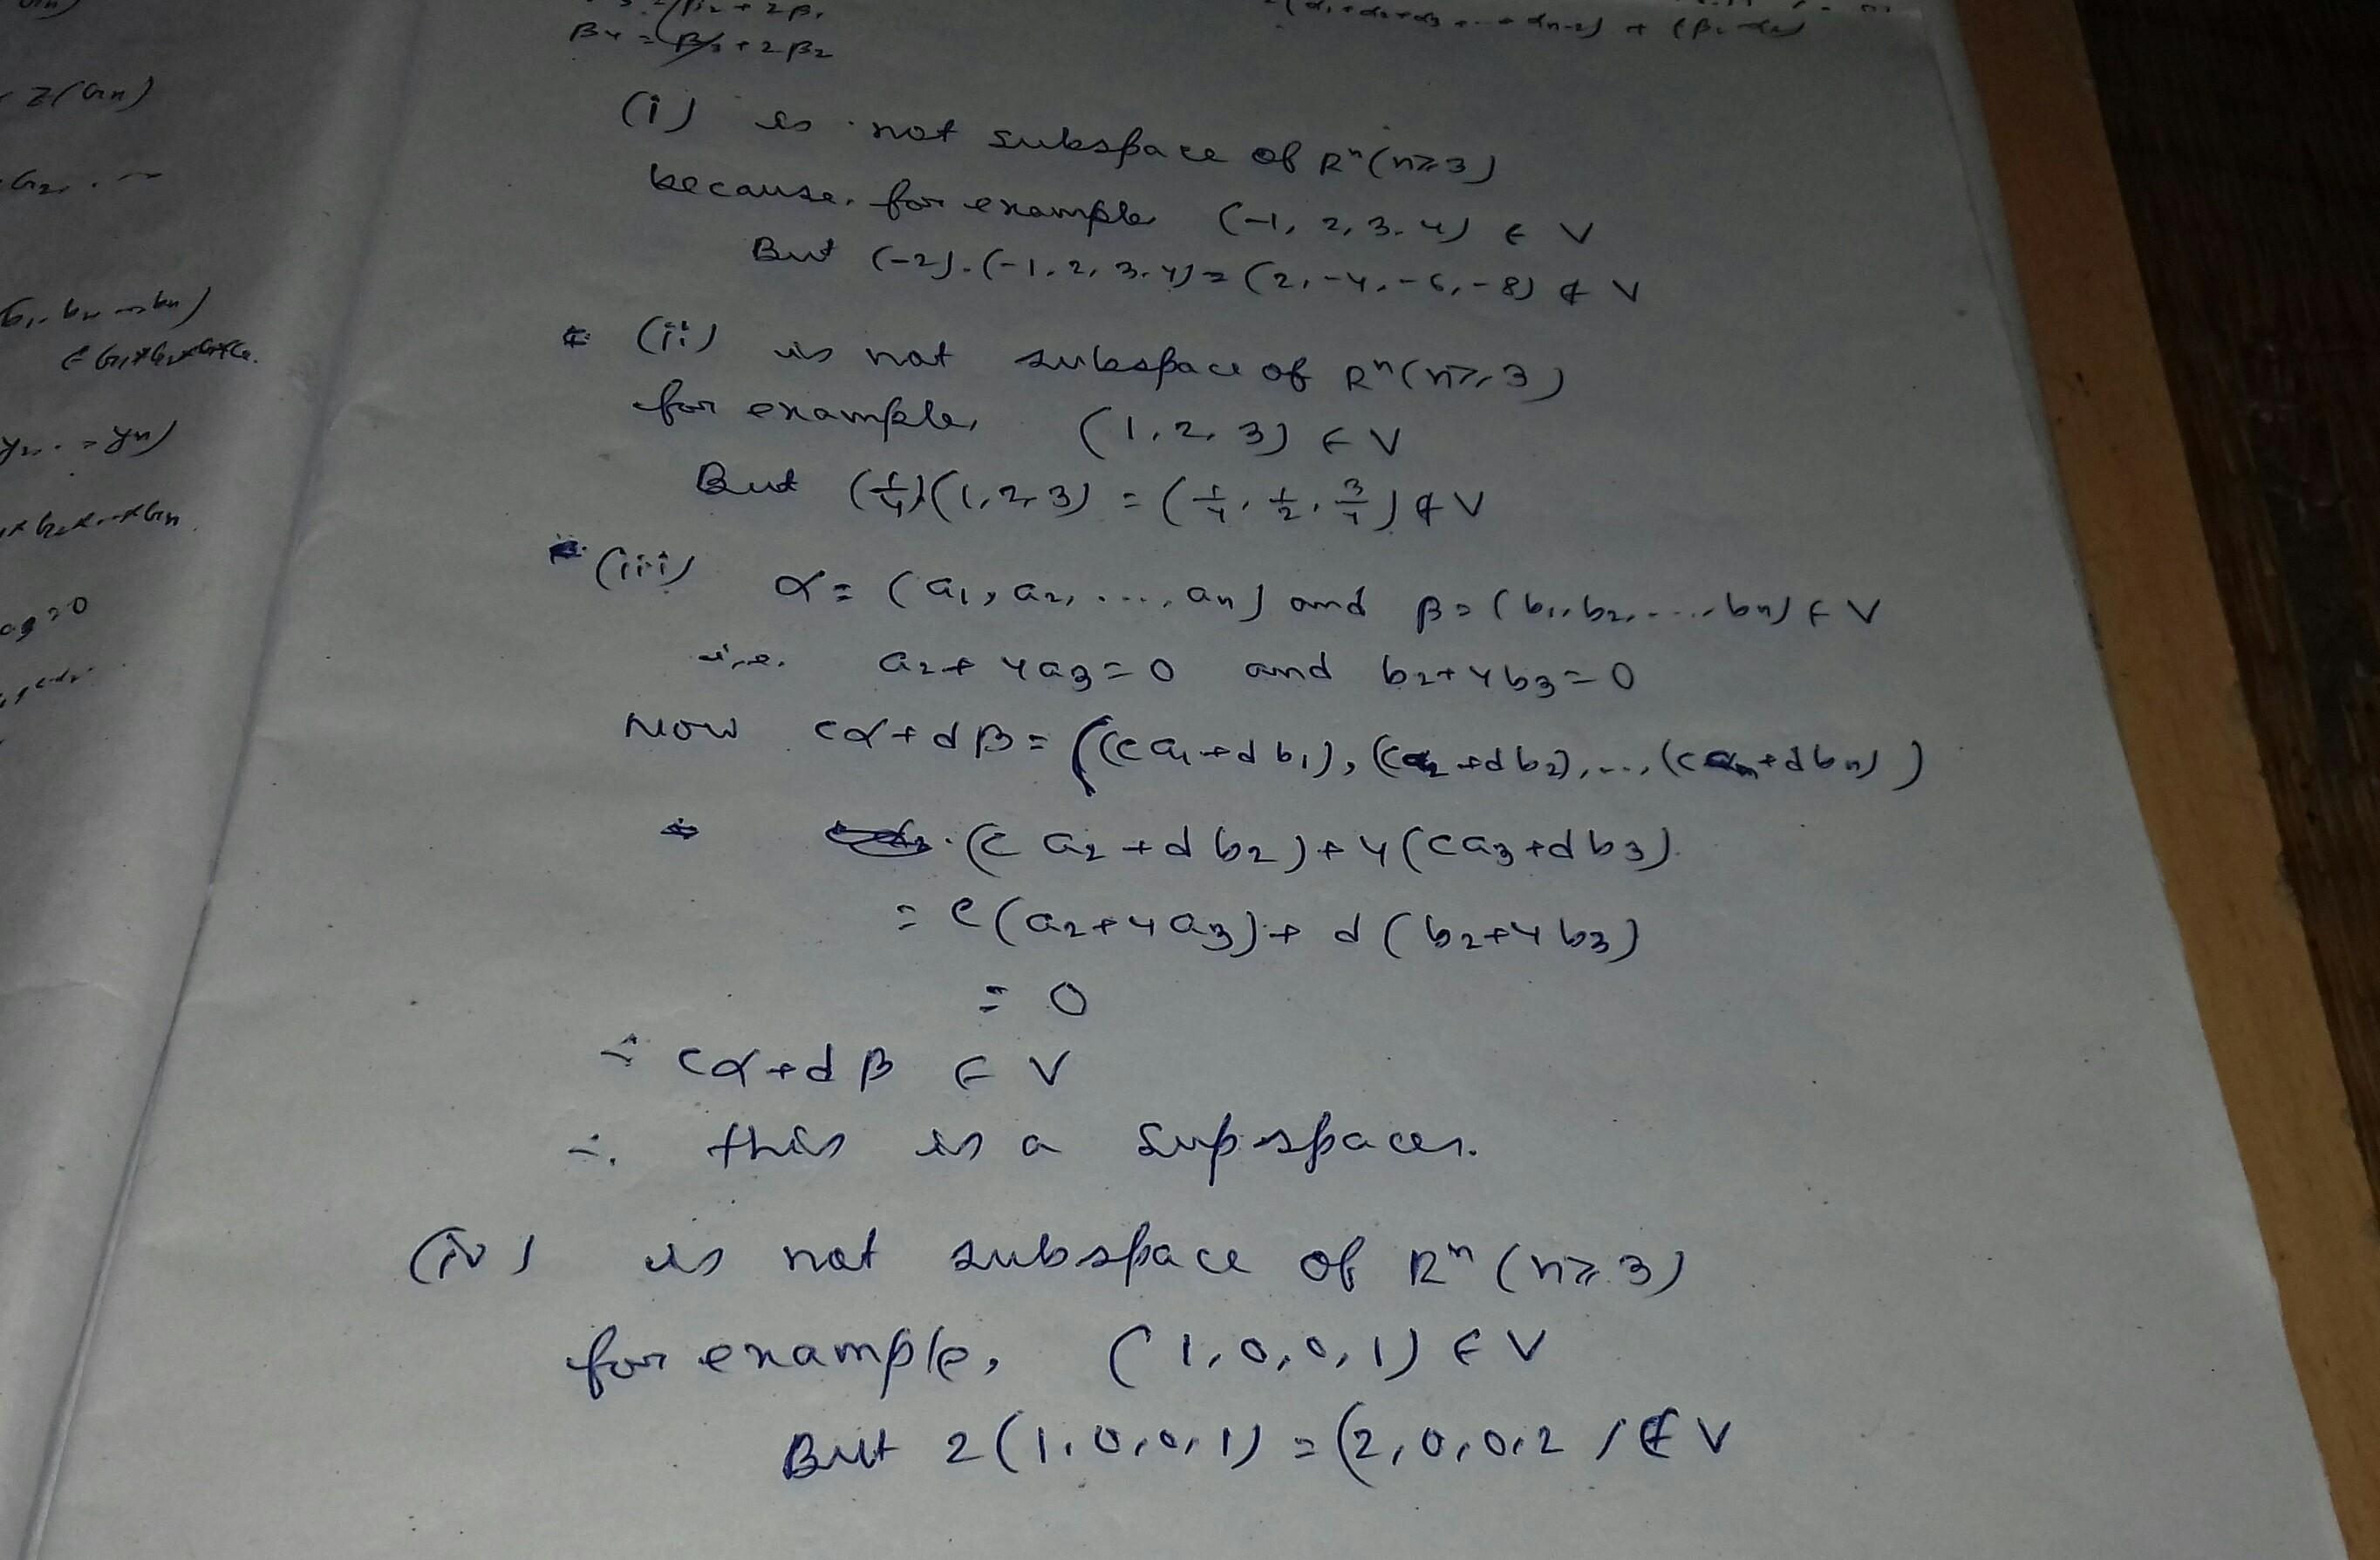 Z(Gn)
β4 = β3 + 2β2
(i) is not subspace of Rⁿ(n≥3)
because, for example (-1, 2, 3, 4) ∈ V
But (-2).(-1, 2, 3, 4) = (2, -4, -6, -8) ∉ V
(ii) is not subspace of Rⁿ(n≥3)
for example, (1, 2, 3) ∈ V
But (1/4)(1, 2, 3) = (1/4, 1/2, 3/4) ∉ V
(iii) α = (a1, a2, ...., an) and β = (b1, b2, ...., bn) ∈ V
i.e. a2 + 4a3 = 0 and b2 + 4b3 = 0
Now cα + dβ = ((ca1 + db1), (ca2 + db2), ..., (can + dbn))
(ca2 + db2) + 4(ca3 + db3)
= c(a2 + 4a3) + d(b2 + 4b3)
= 0
∴ cα + dβ ∈ V
∴ this is a supspaces.
(iv) is not subspace of Rⁿ (n≥3)
for example, (1, 0, 0, 1) ∈ V
But 2(1, 0, 0, 1) = (2, 0, 0, 2) ∉ V